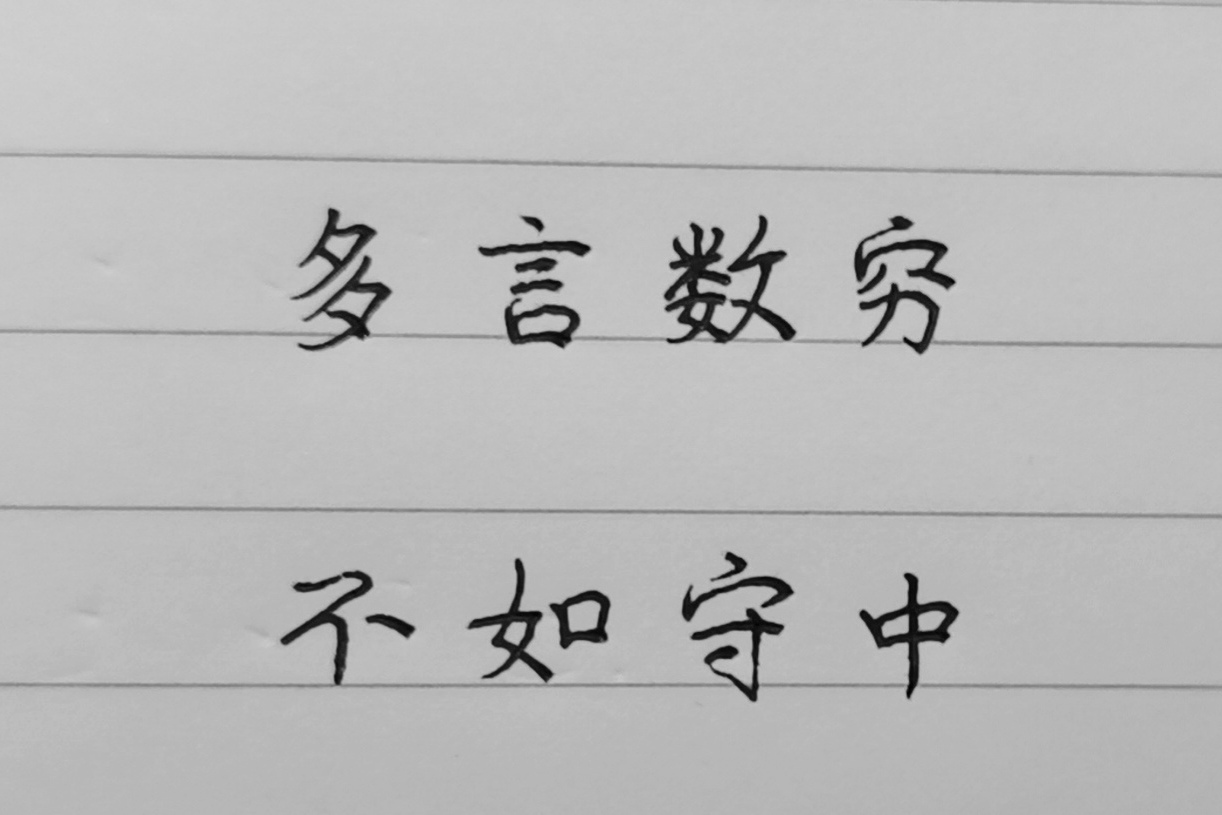 多言数穷
不如守中